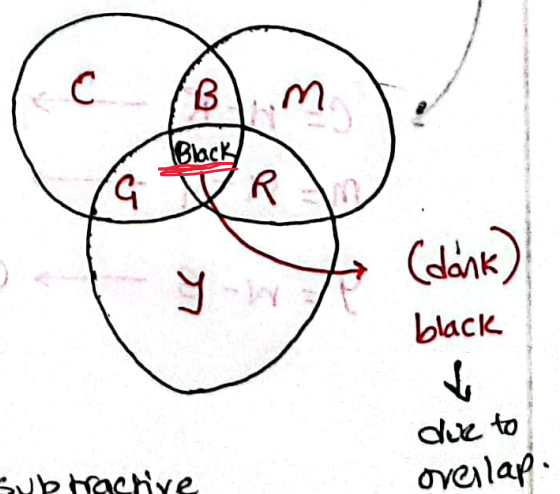 C B M
Black
G R
Y
(dark)
black
↓
due to
overlap.
subtractive